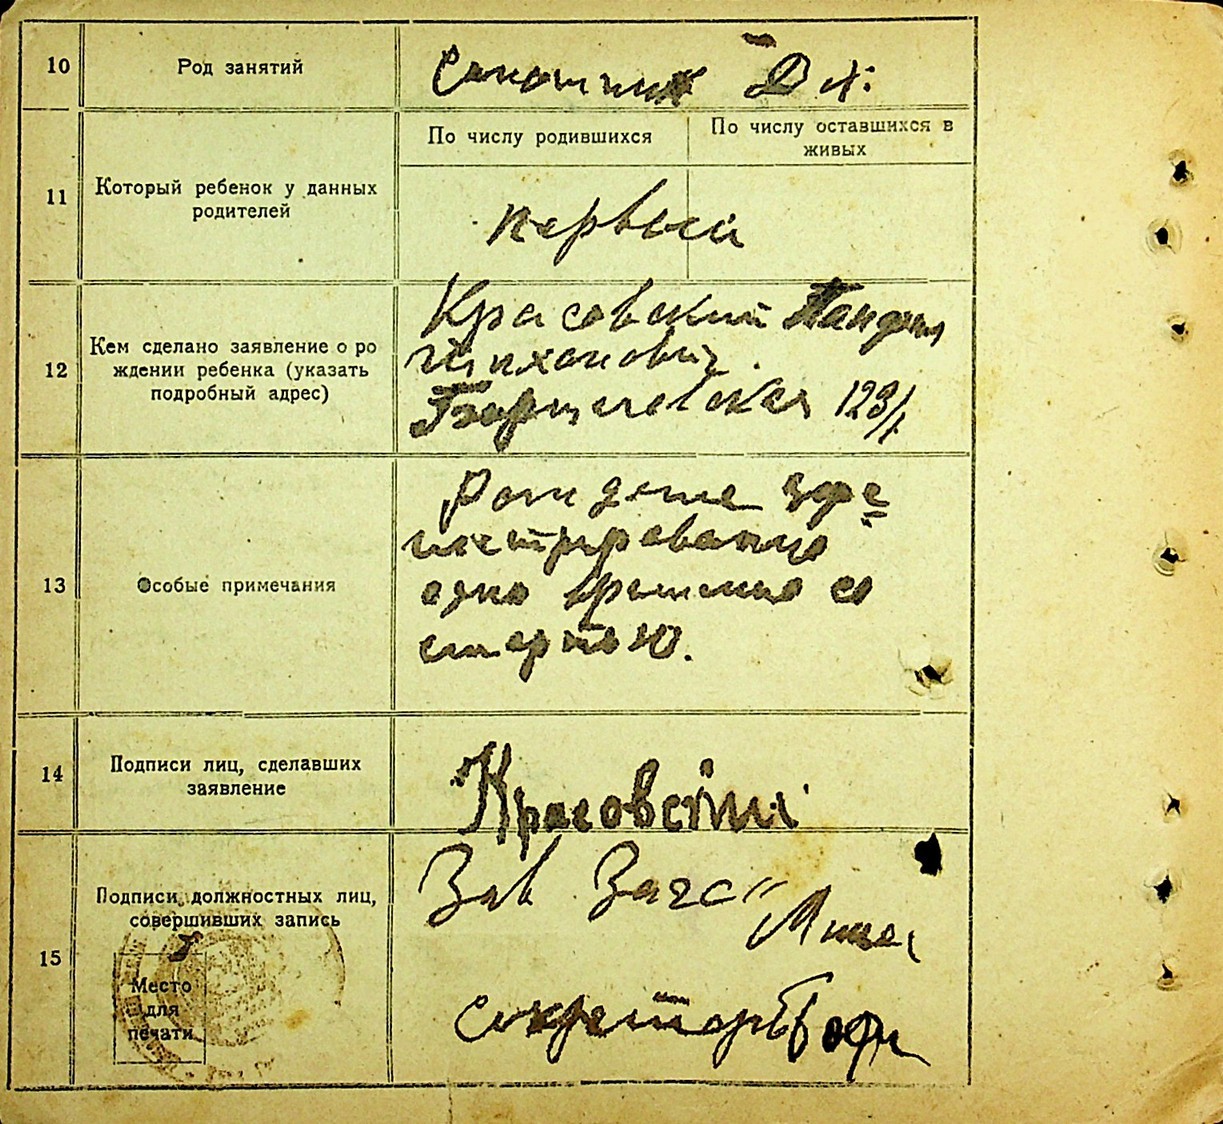 10
Род занятий
11
Который ребенок у данных
родителей
По числу родившихся
По числу оставшихся в
живых
первый
12
Кем сделано заявление о ро
ждении ребенка (указать
подробный адрес)
Красовский
Тихонович
Борщаговская 123/1
13
Особые примечания
Рождение заре
гистрировано
одно временно со
смертью.
14
Подписи лиц, сделавших
заявление
Красовский
15
Подписи должностных лиц,
совершивших запись
Место
для
печати
Зав Загс
секретарь